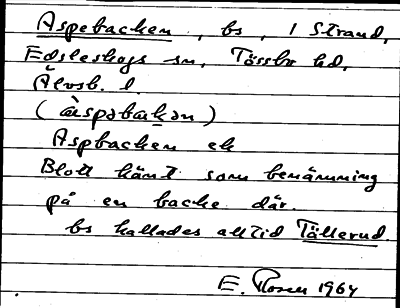 Aspebacken, bs, i Strand,
Edsleskogs sn, Tössbo hd,
Älvsb. l.
(àspəbakən)
Aspbacken ek
Blott känt som benämning
på en backe där.
bs kallades alltid Tällerud.
E. Rosen 1964